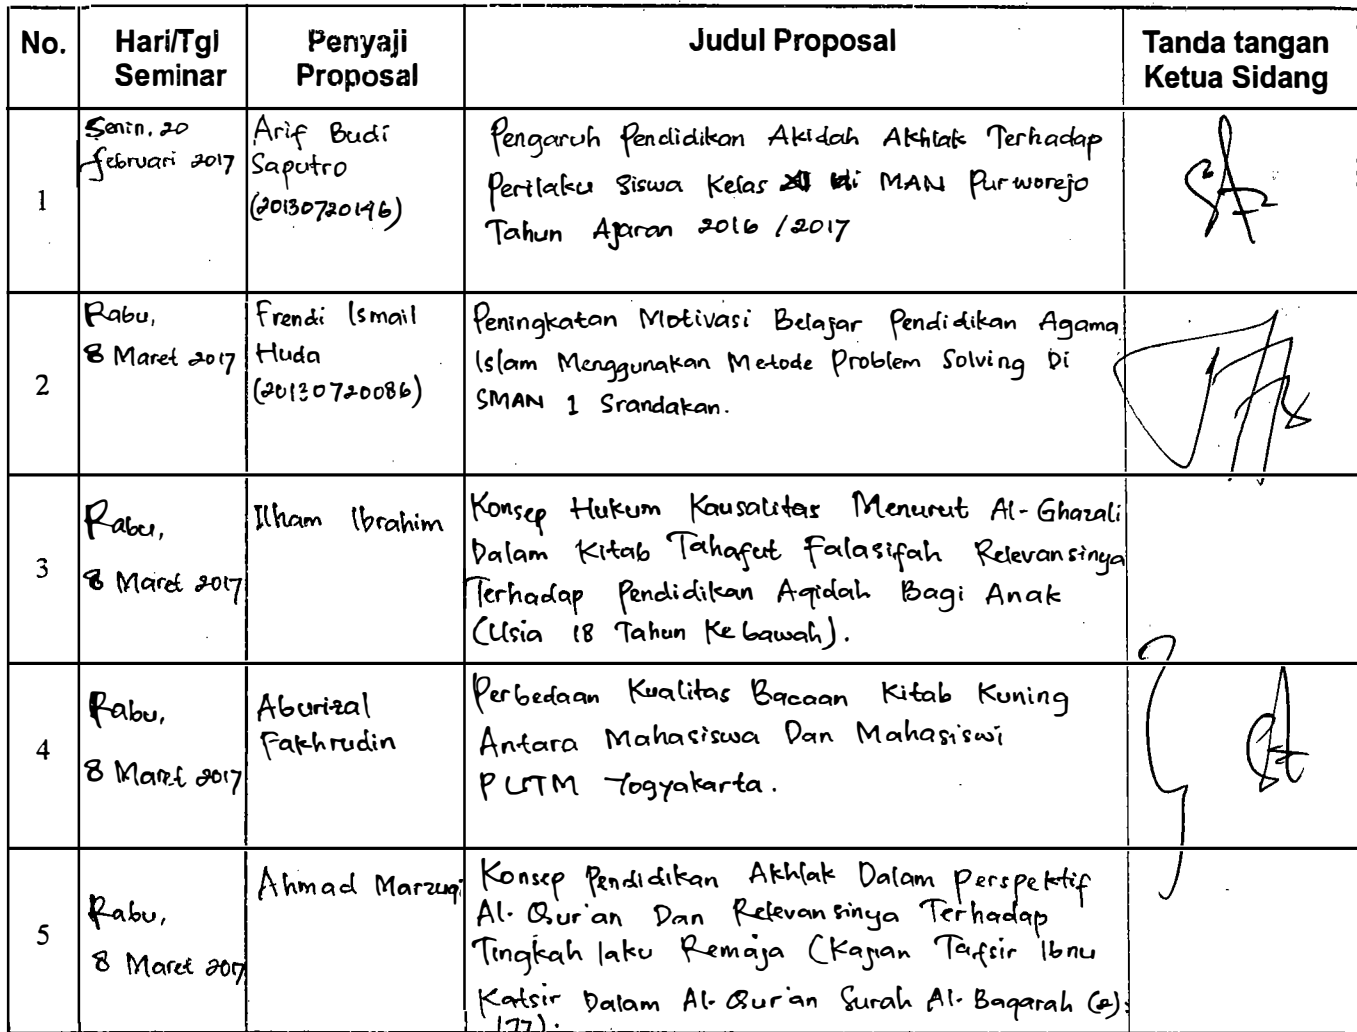 No. Hari/Tgl Seminar Penyaji Proposal Judul Proposal Tanda tangan Ketua Sidang
1
Senin, 20
Februari 2017
Arif Budi
Saputro
(20130720146)
Pengaruh Pendidikan Akidah Akhlak Terhadap
Perilaku Siswa Kelas XI di MAN Purworejo
Tahun Ajaran 2016 / 2017
2
Rabu,
8 Maret 2017
Frendi Ismail
Huda
(20130720086)
Peningkatan Motivasi Belajar Pendidikan Agama
Islam Menggunakan Metode Problem Solving Di
SMAN 1 Srandakan.
3
Rabu,
8 Maret 2017
Ilham Ibrahim
Konsep Hukum Kausalitas Menurut Al-Ghazali
Dalam Kitab Tahafut Falasifah Relevansinya
Terhadap Pendidikan Aqidah Bagi Anak
(Usia 18 Tahun Ke bawah).
4
Rabu,
8 Maret 2017
Aburizal
Fakhrudin
Perbedaan Kualitas Bacaan Kitab Kuning
Antara Mahasiswa Dan Mahasiswi
PUTM Yogyakarta.
5
Rabu,
8 Maret 2017
Ahmad Marzuqi
Konsep Pendidikan Akhlak Dalam Perspektif
Al-Qur'an Dan Relevansinya Terhadap
Tingkah laku Remaja (Kajian Tafsir Ibnu
Katsir Dalam Al-Qur'an Surah Al-Baqarah (2):
177).